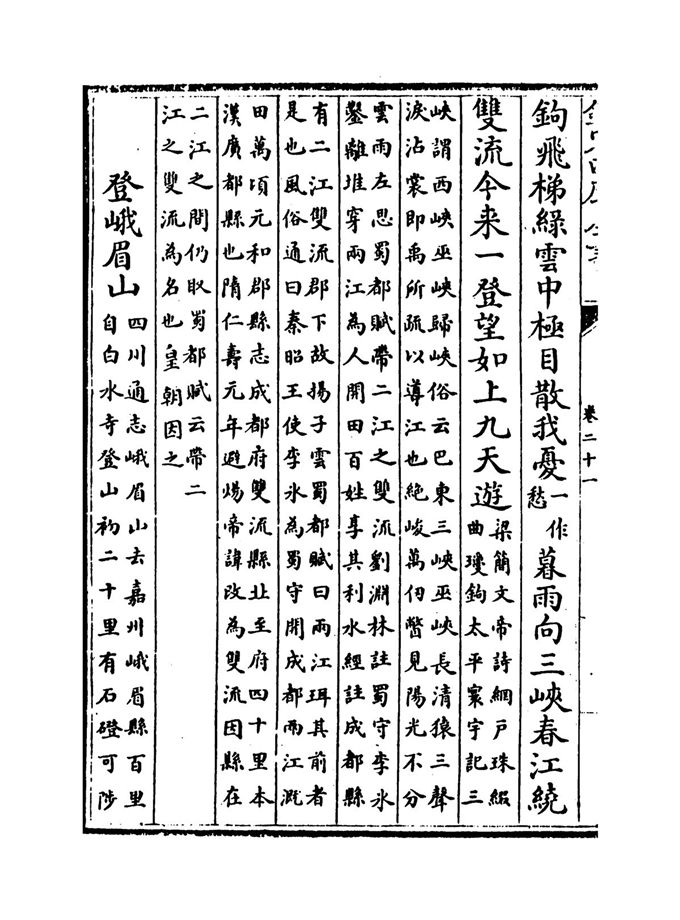 卷二十一
鉤飛梯綠雲中極目散我憂一作愁暮雨向三峽春江繞
雙流今來一登望如上九天遊
梁簡文帝詩網戸珠綴
曲瓊鉤太平寰宇記三
峽謂西峽巫峽歸峽俗云巴東三峽巫峽長清猿三聲
淚沾裳即禹所疏以導江也絶峻萬仞瞥見陽光不分
雲雨左思蜀都賦帶二江之雙流劉淵林註蜀守李氷
鑿離堆穿兩江為人開田百姓享其利水經註成都縣
有二江雙流郡下故揚子雲蜀都賦曰兩江珥其前者
是也風俗通曰秦昭王使李氷為蜀守開成都兩江溉
田萬頃元和郡縣志成都府雙流縣北至府四十里本
漢廣都縣也隋仁壽元年避煬帝諱改為雙流因縣在
二江之間仍取蜀都賦云帶二
江之雙流為名也皇朝因之
登峨眉山
四川通志峨眉山去嘉州峨眉縣百里
自白水寺登山初二十里有石磴可陟